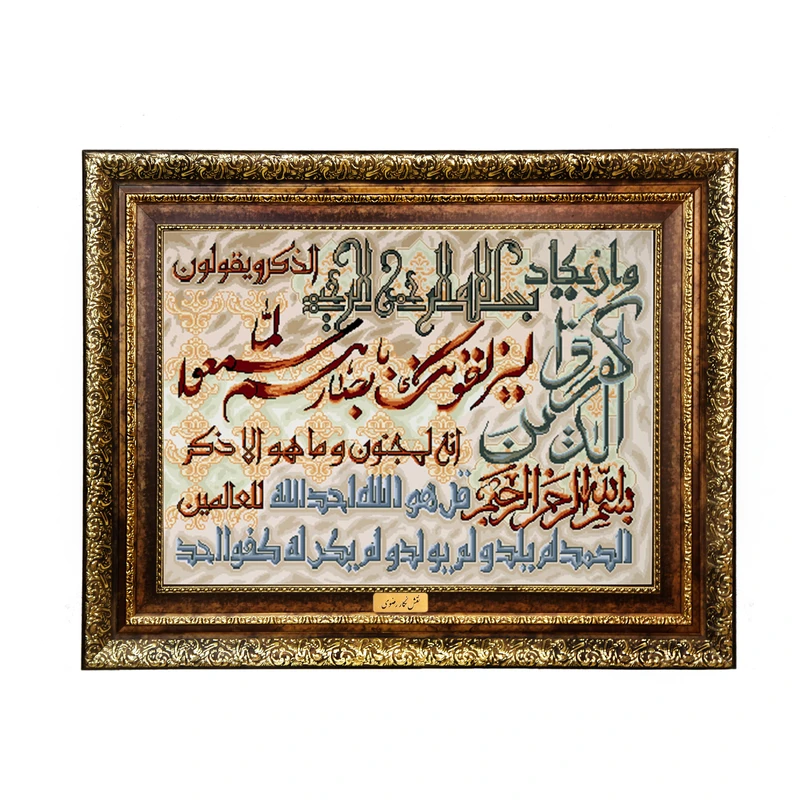 بسم الله الرحمن الرحیم
وان یکاد
الذین
کفروا
لیزلقونک بابصارهم
لما سمعوا
الذکر و یقولون
انه لمجنون و ما هو الا ذکر
للعالمین
بسم الله الرحمن الرحیم
قل هو الله احد الله
الصمد لم یلد و لم یولد و لم یکن له کفوا احد
نقش نگار رضوی